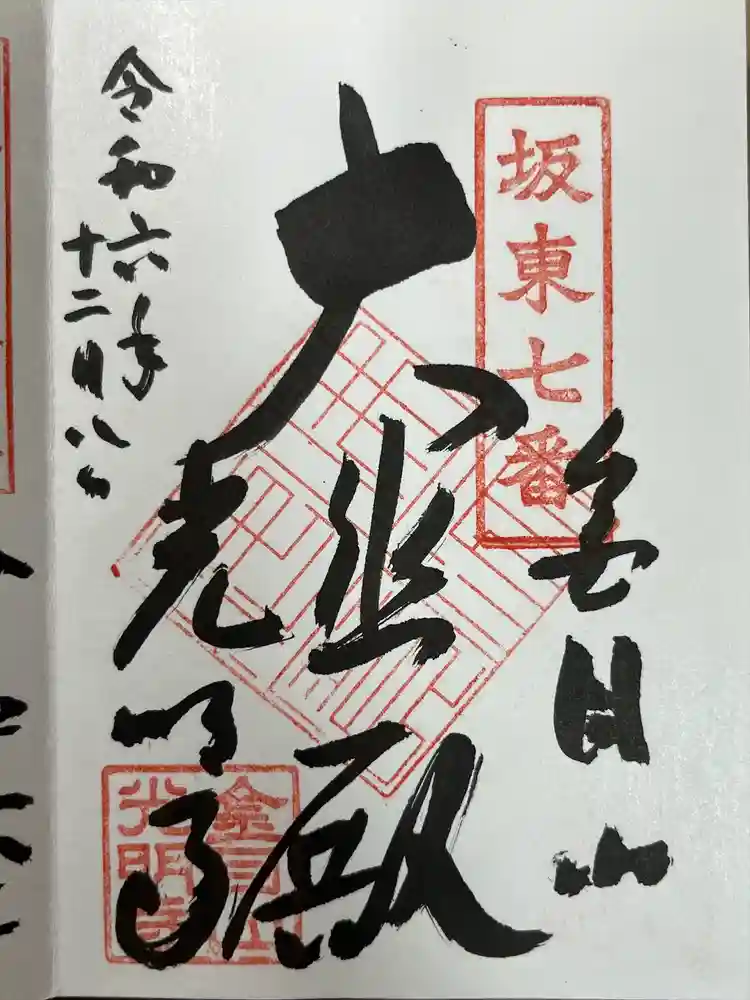 坂東七番
金目山
大悲殿
光明寺
令和六年
十二月八日
金目山
光明寺